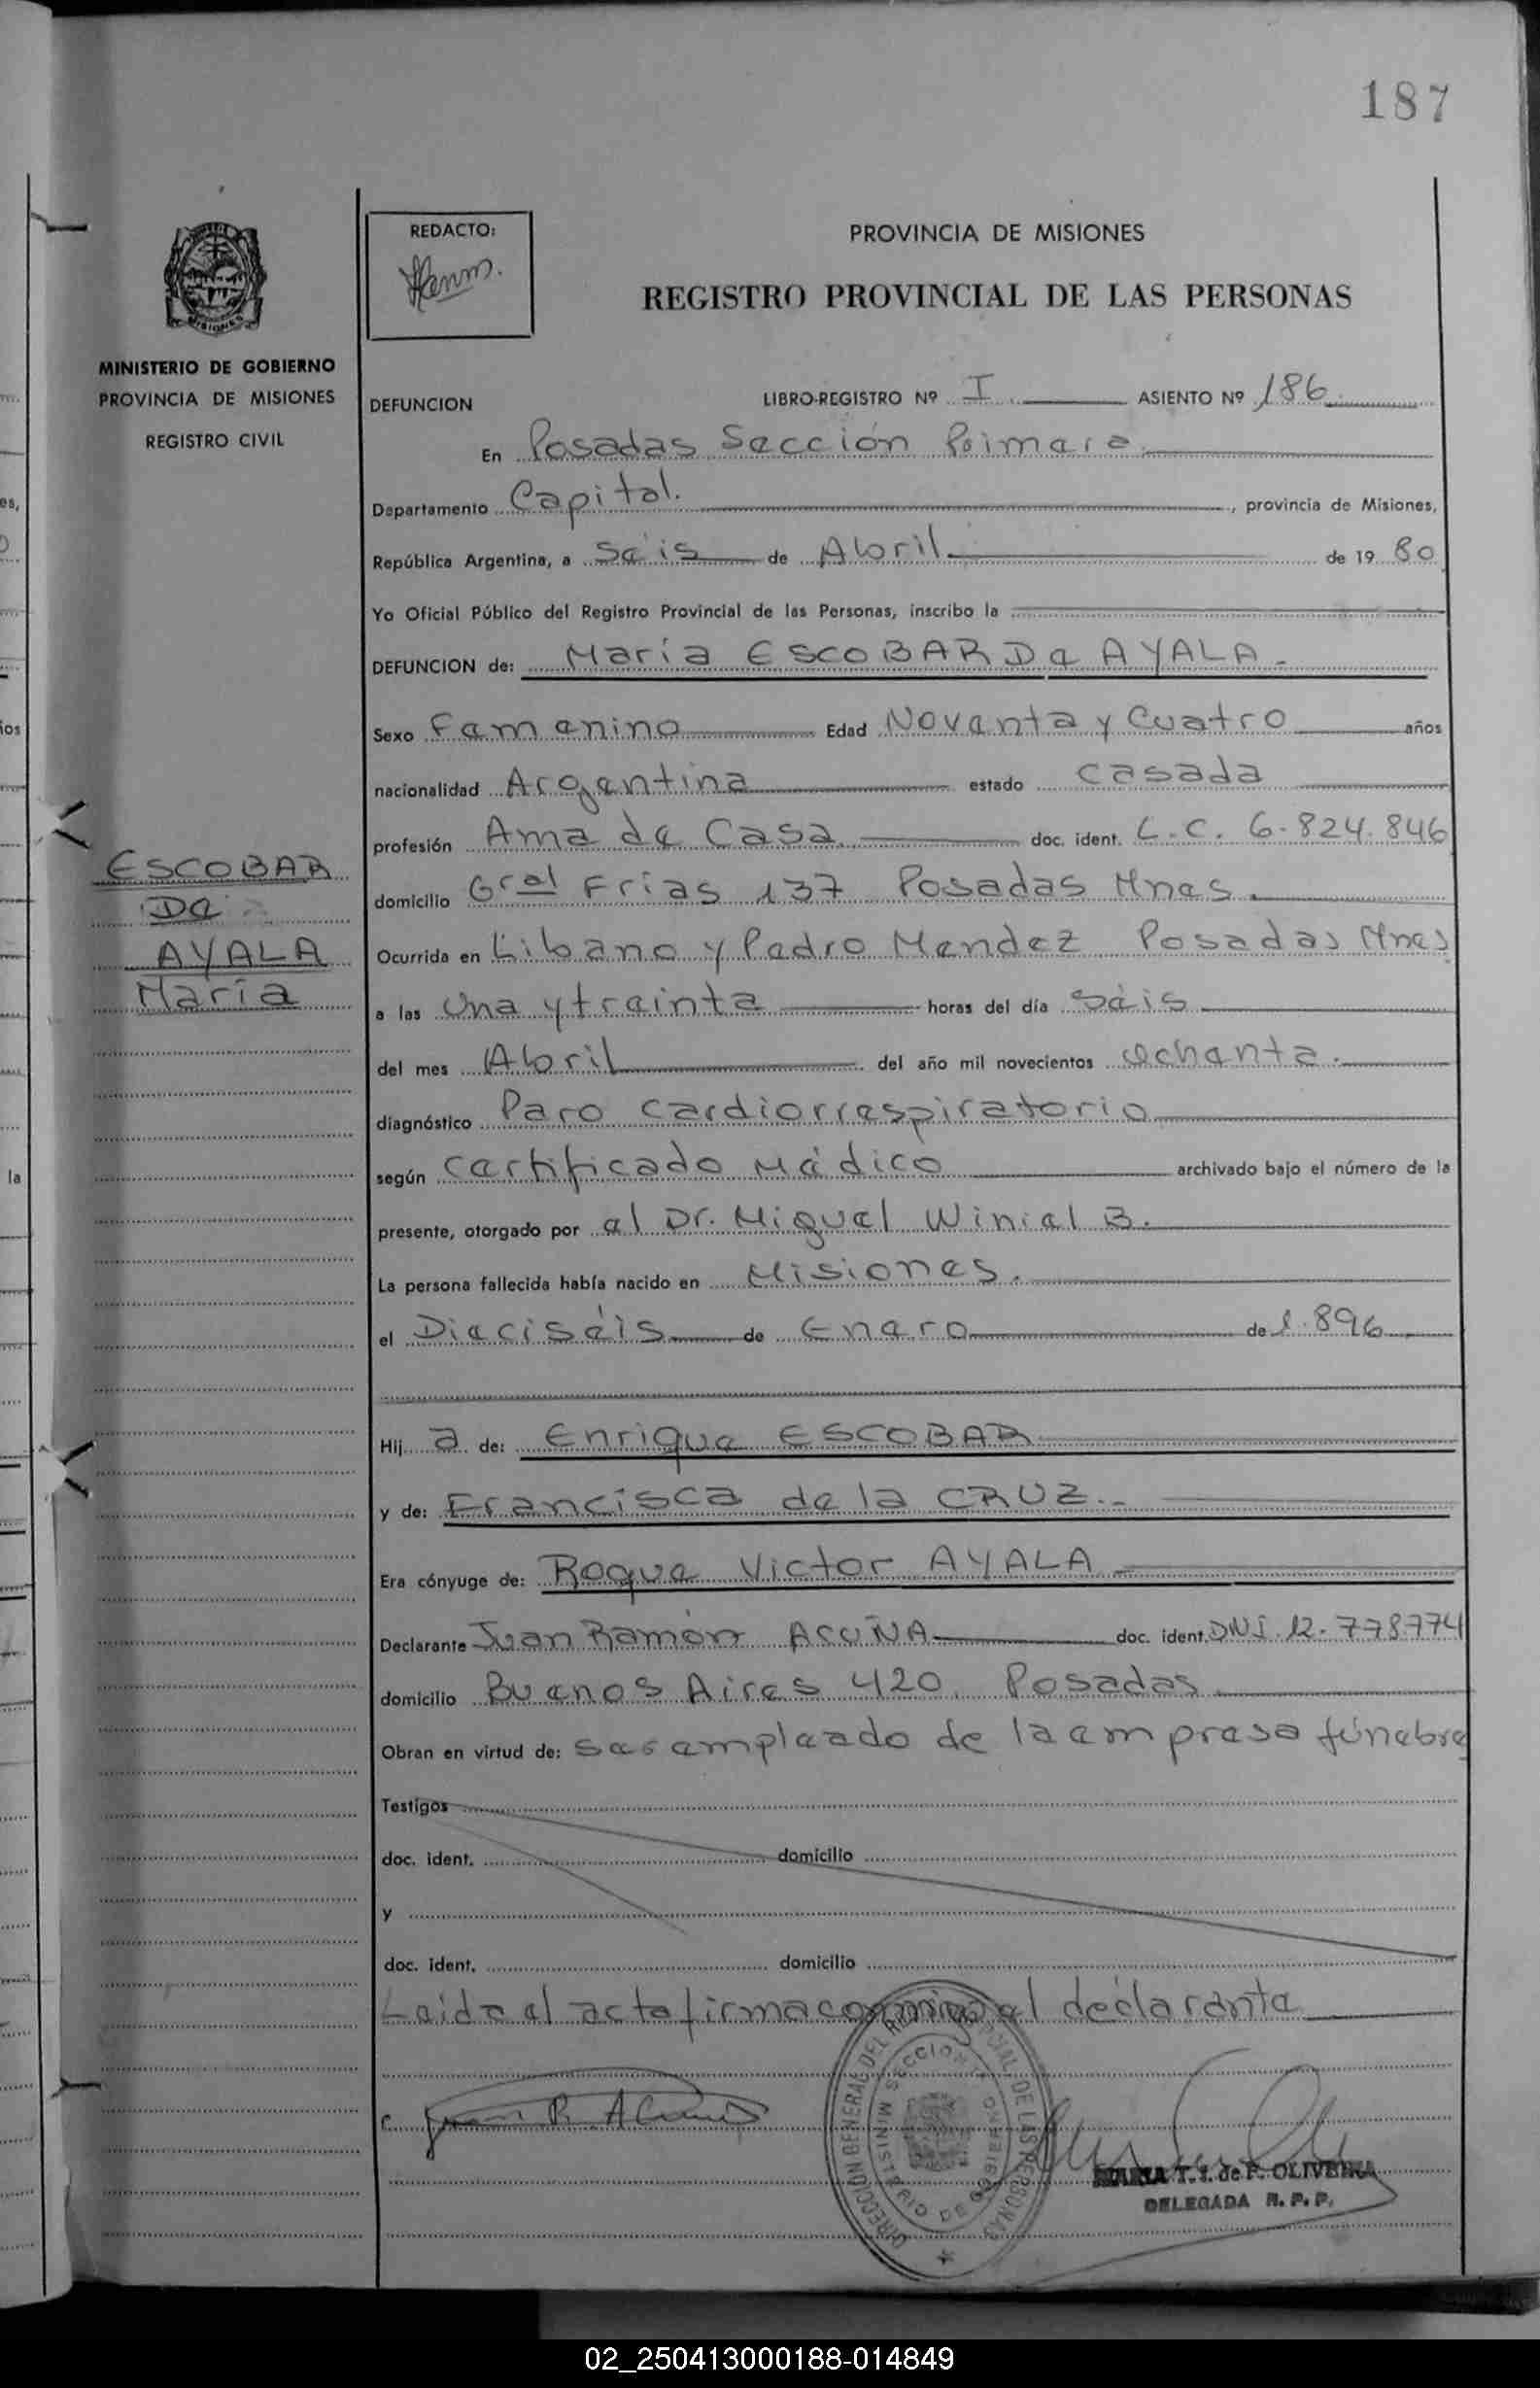 187
REDACTO:
PROVINCIA DE MISIONES
REGISTRO PROVINCIAL DE LAS PERSONAS
MINISTERIO DE GOBIERNO
PROVINCIA DE MISIONES
REGISTRO CIVIL
DEFUNCION LIBRO-REGISTRO Nº I ASIENTO Nº 186
En Posadas Sección Primera
Departamento Capital. , provincia de Misiones,
República Argentina, a Séis de Abril de 19 80
Yo Oficial Público del Registro Provincial de las Personas, inscribo la
DEFUNCION de: María ESCOBAR De AYALA.
Sexo Femenino Edad Noventa y Cuatro años
nacionalidad Argentina estado casada
profesión Ama de Casa doc. ident. L.C. 6.824.846
ESCOBAR
De
AYALA
María
domicilio Gral Frías 137 Posadas Mnes.
Ocurrida en Líbano y Pedro Mendez Posadas Mnes
a las Una y treinta horas del día séis
del mes Abril del año mil novecientos ochenta.
diagnóstico Paro cardiorrespiratorio
según certificado Médico archivado bajo el número de la
presente, otorgado por el Dr. Miguel Winiel B.
La persona fallecida había nacido en Misiones.
el Dieciséis de Enero de 1.896
Hij a de: Enrique ESCOBAR
y de: Francisca de la CRUZ.-
Era cónyuge de: Roque Victor AYALA
Declarante Juan Ramón ACUÑA doc. ident. DNI. 12.778774
domicilio Buenos Aires 420. Posadas
Obran en virtud de: ser empleado de la empresa fúnebre
Testigos
doc. ident. domicilio
y
doc. ident. domicilio
Leida el acta firma conmigo el declarante
DIRECCION GENERAL DEL REGISTRO PROVINCIAL DE LAS PERSONAS
MINISTERIO DE GOBIERNO
SECCION
MARIA T. I. de F. OLIVEIRA
DELEGADA R. P. P.
02_250413000188-014849